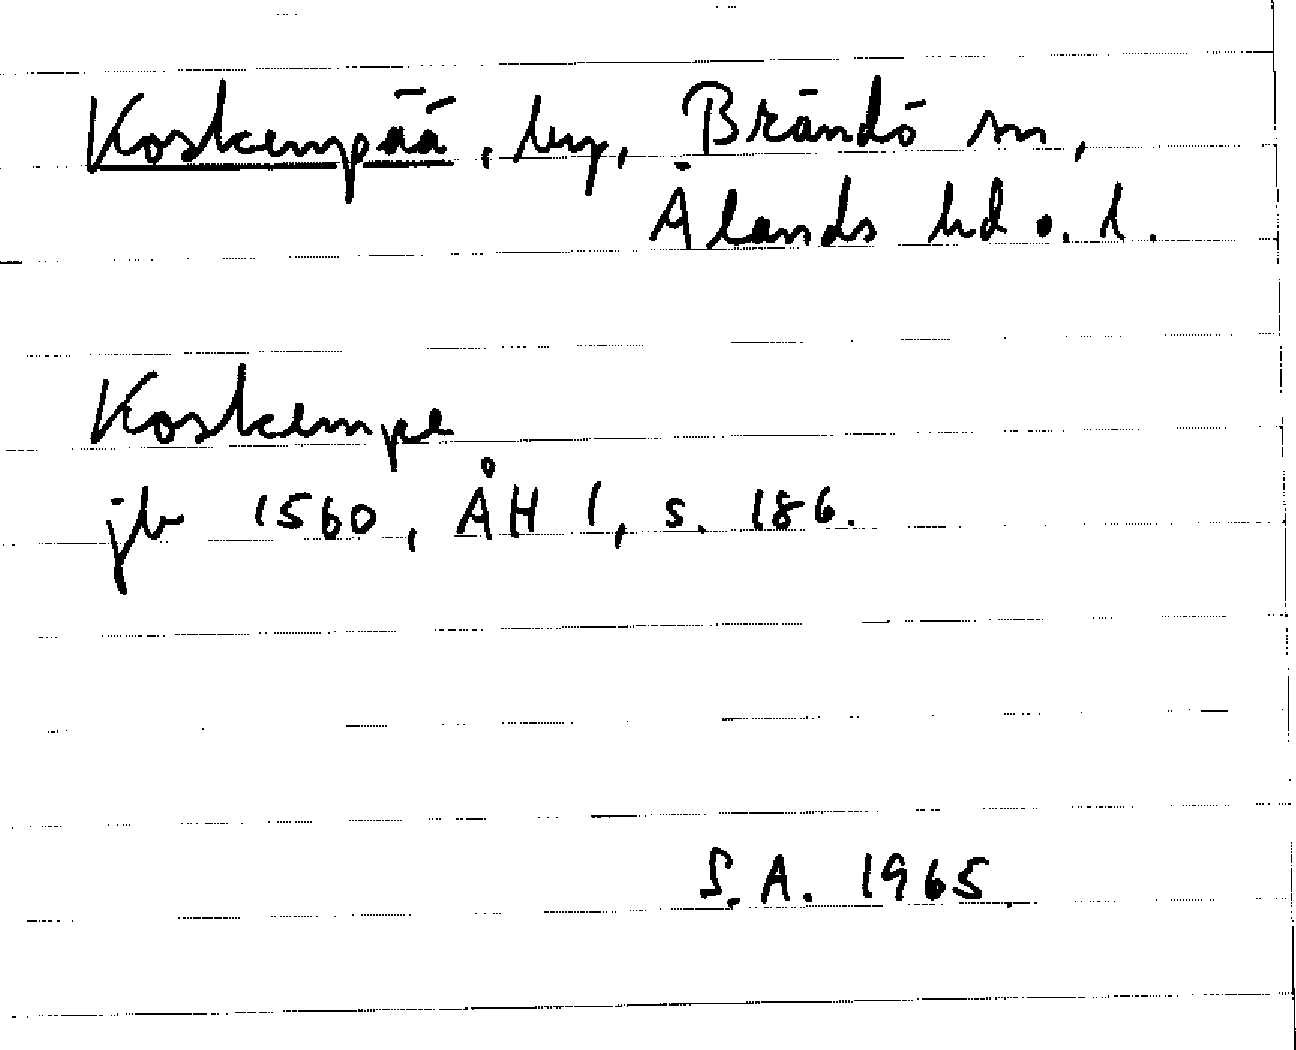 Koskenpää, by, Brändö sn,
Ålands hd o. l.
Koskempe
jb 1560, ÅH 1, s. 186.
S.A. 1965.